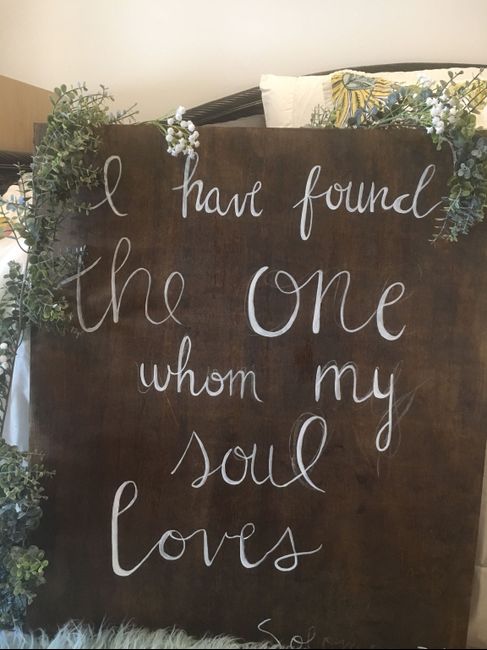 I have found
the one
whom my
soul
loves